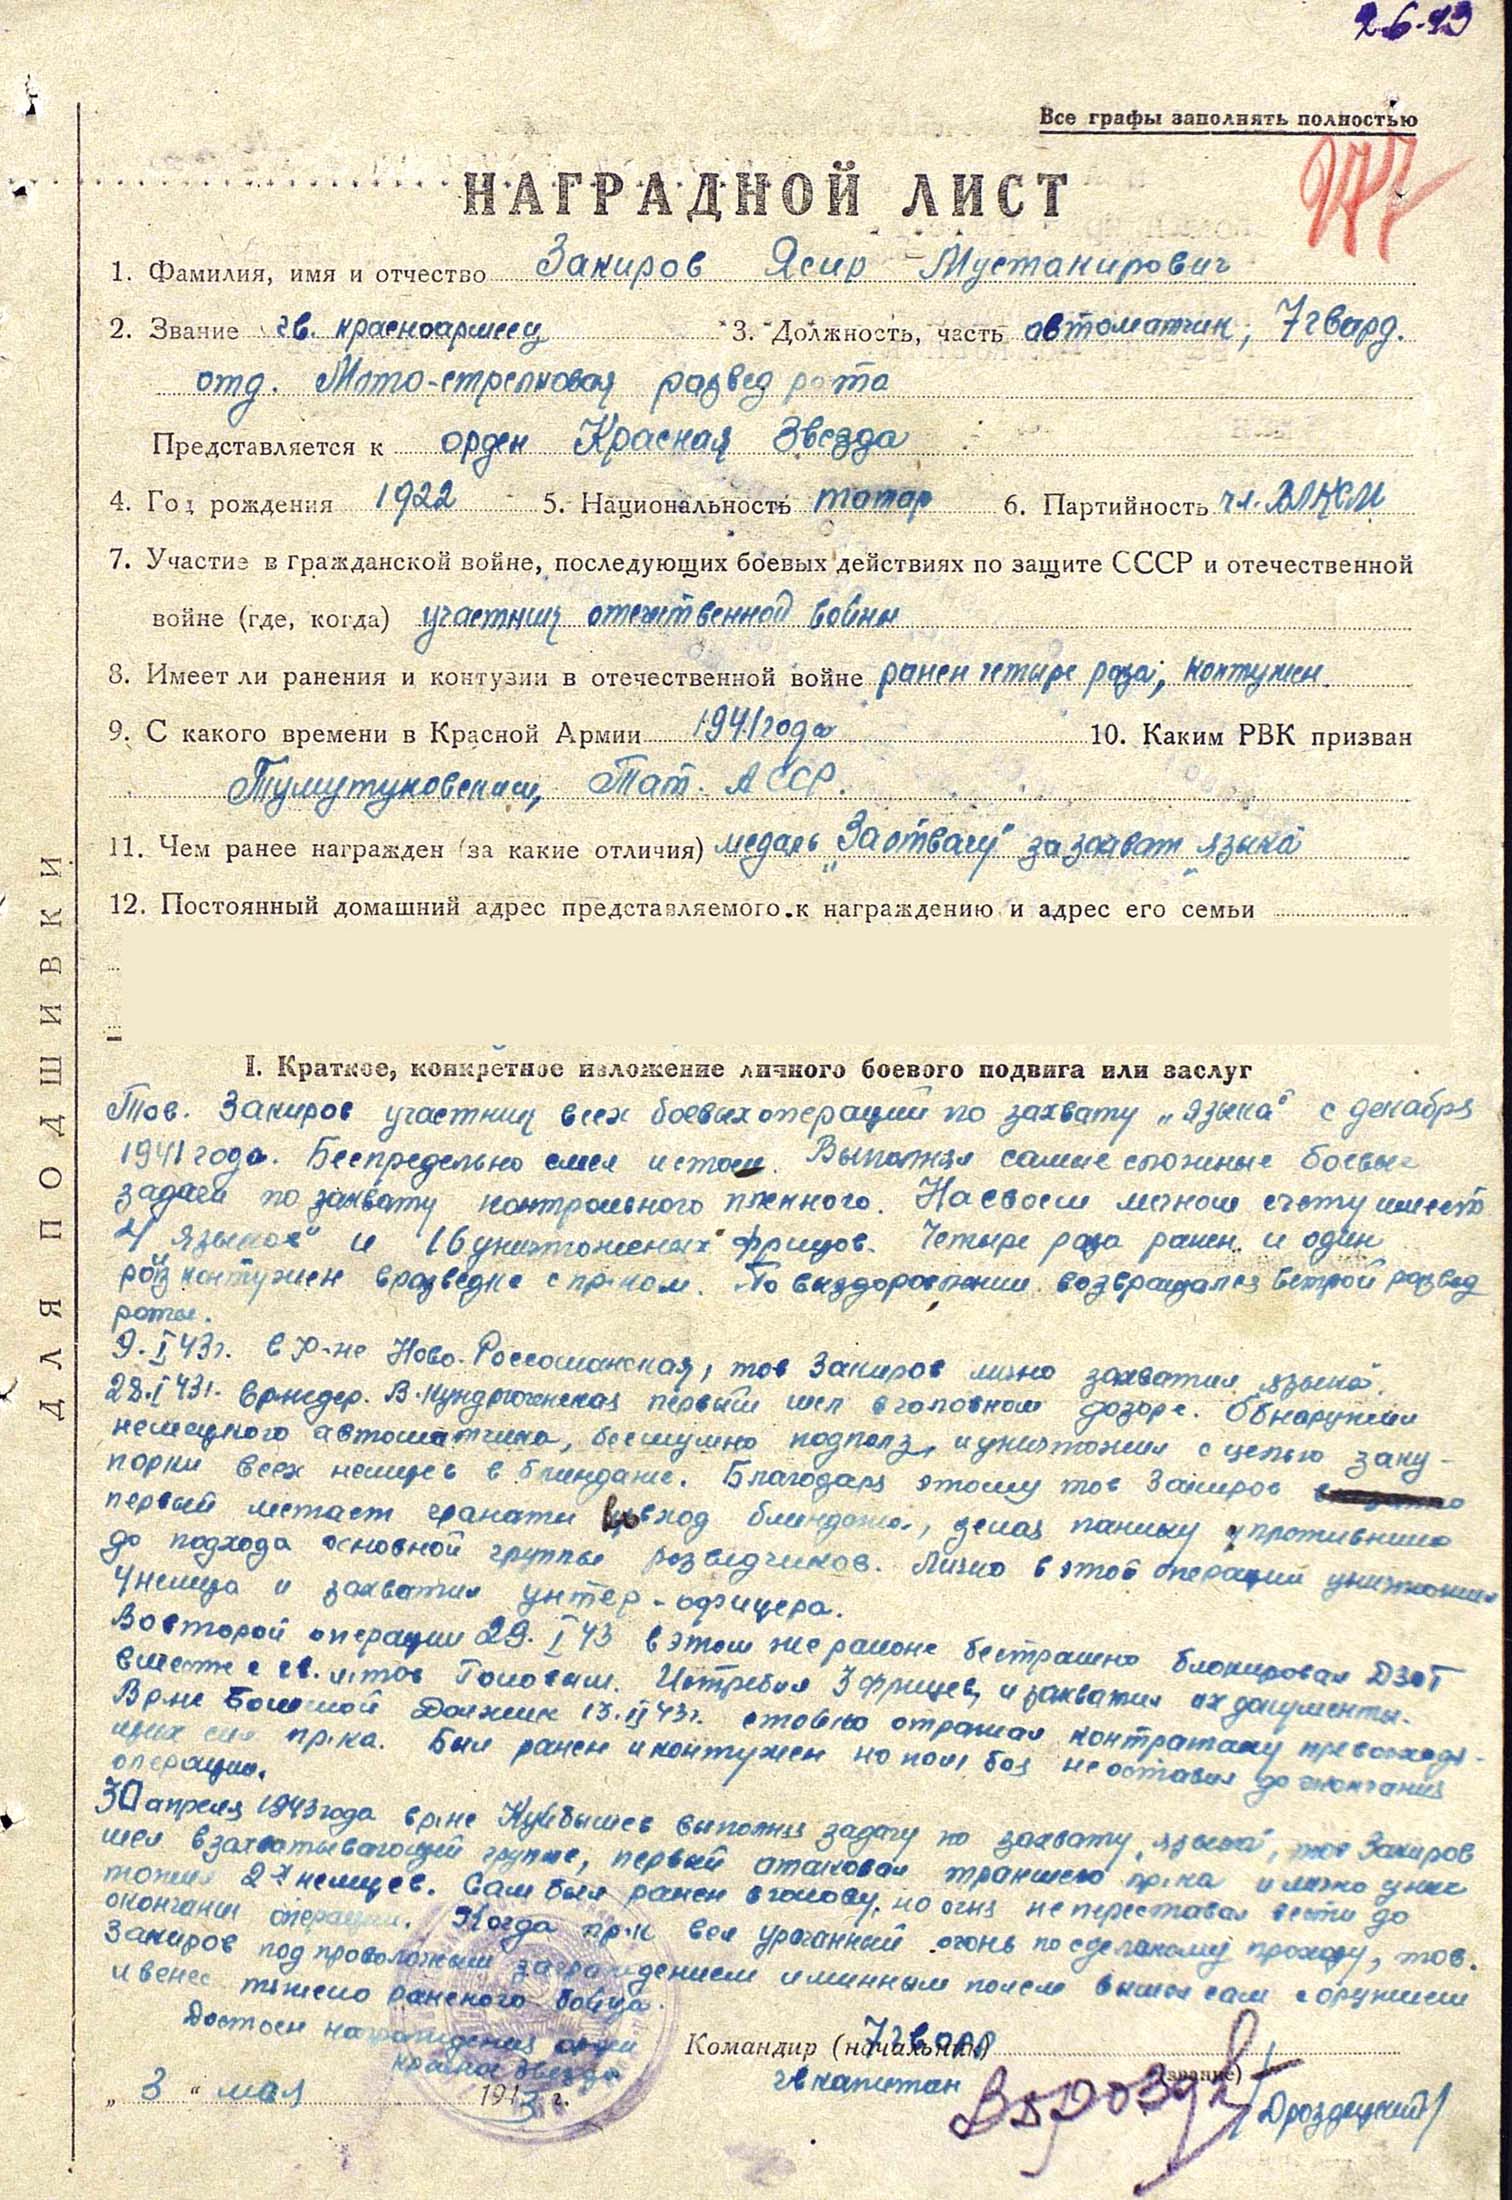 2-6-43
Все графы заполнять полностью
277
НАГРАДНОЙ ЛИСТ
1. Фамилия, имя и отчество Закиров Ясир Мустакирович
2. Звание гв. красноармеец 3. Должность, часть автоматчик, 7 гвард.
отд. Мото-стрелковая развед рота
Представляется к орден Красная Звезда
4. Год рождения 1922 5. Национальность татар 6. Партийность чл. ВЛКСМ
7. Участие в гражданской войне, последующих боевых действиях по защите СССР и отечественной
войне (где, когда) участник отечественной войны
8. Имеет ли ранения и контузии в отечественной войне ранен четыре раза, контужен
9. С какого времени в Красной Армии 1941 года 10. Каким РВК призван
Тумутуковским, Тат. АССР.
11. Чем ранее награжден (за какие отличия) медаль „За отвагу" за захват „языка"
12. Постоянный домашний адрес представляемого к награждению и адрес его семьи
ДЛЯ ПОДШИВКИ
I. Краткое, конкретное изложение личного боевого подвига или заслуг
Тов. Закиров участник всех боевых операций по захвату „языка" с декабря
1941 года. Беспредельно смел и стоек. Выполнял самые сложные боевые
задачи по захвату контрольного пленного. На своем личном счету имеет
4 „языков" и 16 уничтоженных фрицов. Четыре раза ранен и один
раз контужен в разведке с пр-ком. По выздоровлении возвращался в строй развед
роты.
9.I 43г. в р-не Ново-Россошанская, тов Закиров лично захватил „языка".
28.I 43г. в р-не дер. В. Кундрюченская первый шел в головном дозоре. Обнаружил
немецкого автоматчика, бесшумно подполз, и уничтожил с целью заку-
порки всех немцев в блиндаже. Благодаря этому тов Закиров
первый метает гранаты в вход блиндажа, делая панику у противника
до подхода основной группы разведчиков. Лично в этой операции уничтожил
4 немца и захватил унтер-офицера.
Во второй операции 29.I 43 в этом же районе бестрашно блокировал ДЗОТ
вместе с гв. л-том Головым. Истребил 3 фрицев, и захватил их документы.
В р-не Большой Должик 13.II 43г. стойко отражал контратаку превосходя-
щих сил пр-ка. Был ранен и контужен но поле боя не оставил до окончания
операции.
30 апреля 1943 года в р-не Куйбышев выполняя задачу по захвату „языка", тов Закиров
шел в захватывающей группе, первый атаковал траншею пр-ка и лично унич
тожил 2х немцев. Сам был ранен в голову, но огня не переставал вести до
окончания операции. Когда пр-к вел ураганный огонь по сделанному проходу, тов.
Закиров под проволочным заграждением и минным полем вышел сам с оружием
и вынес тяжело раненого бойца.
Достоен награждения орден
красная звезда
Командир (начальник) 7 гвард
гв капитан (звание)
/Дроздецкий/
„ 3 " мая 1943 г.